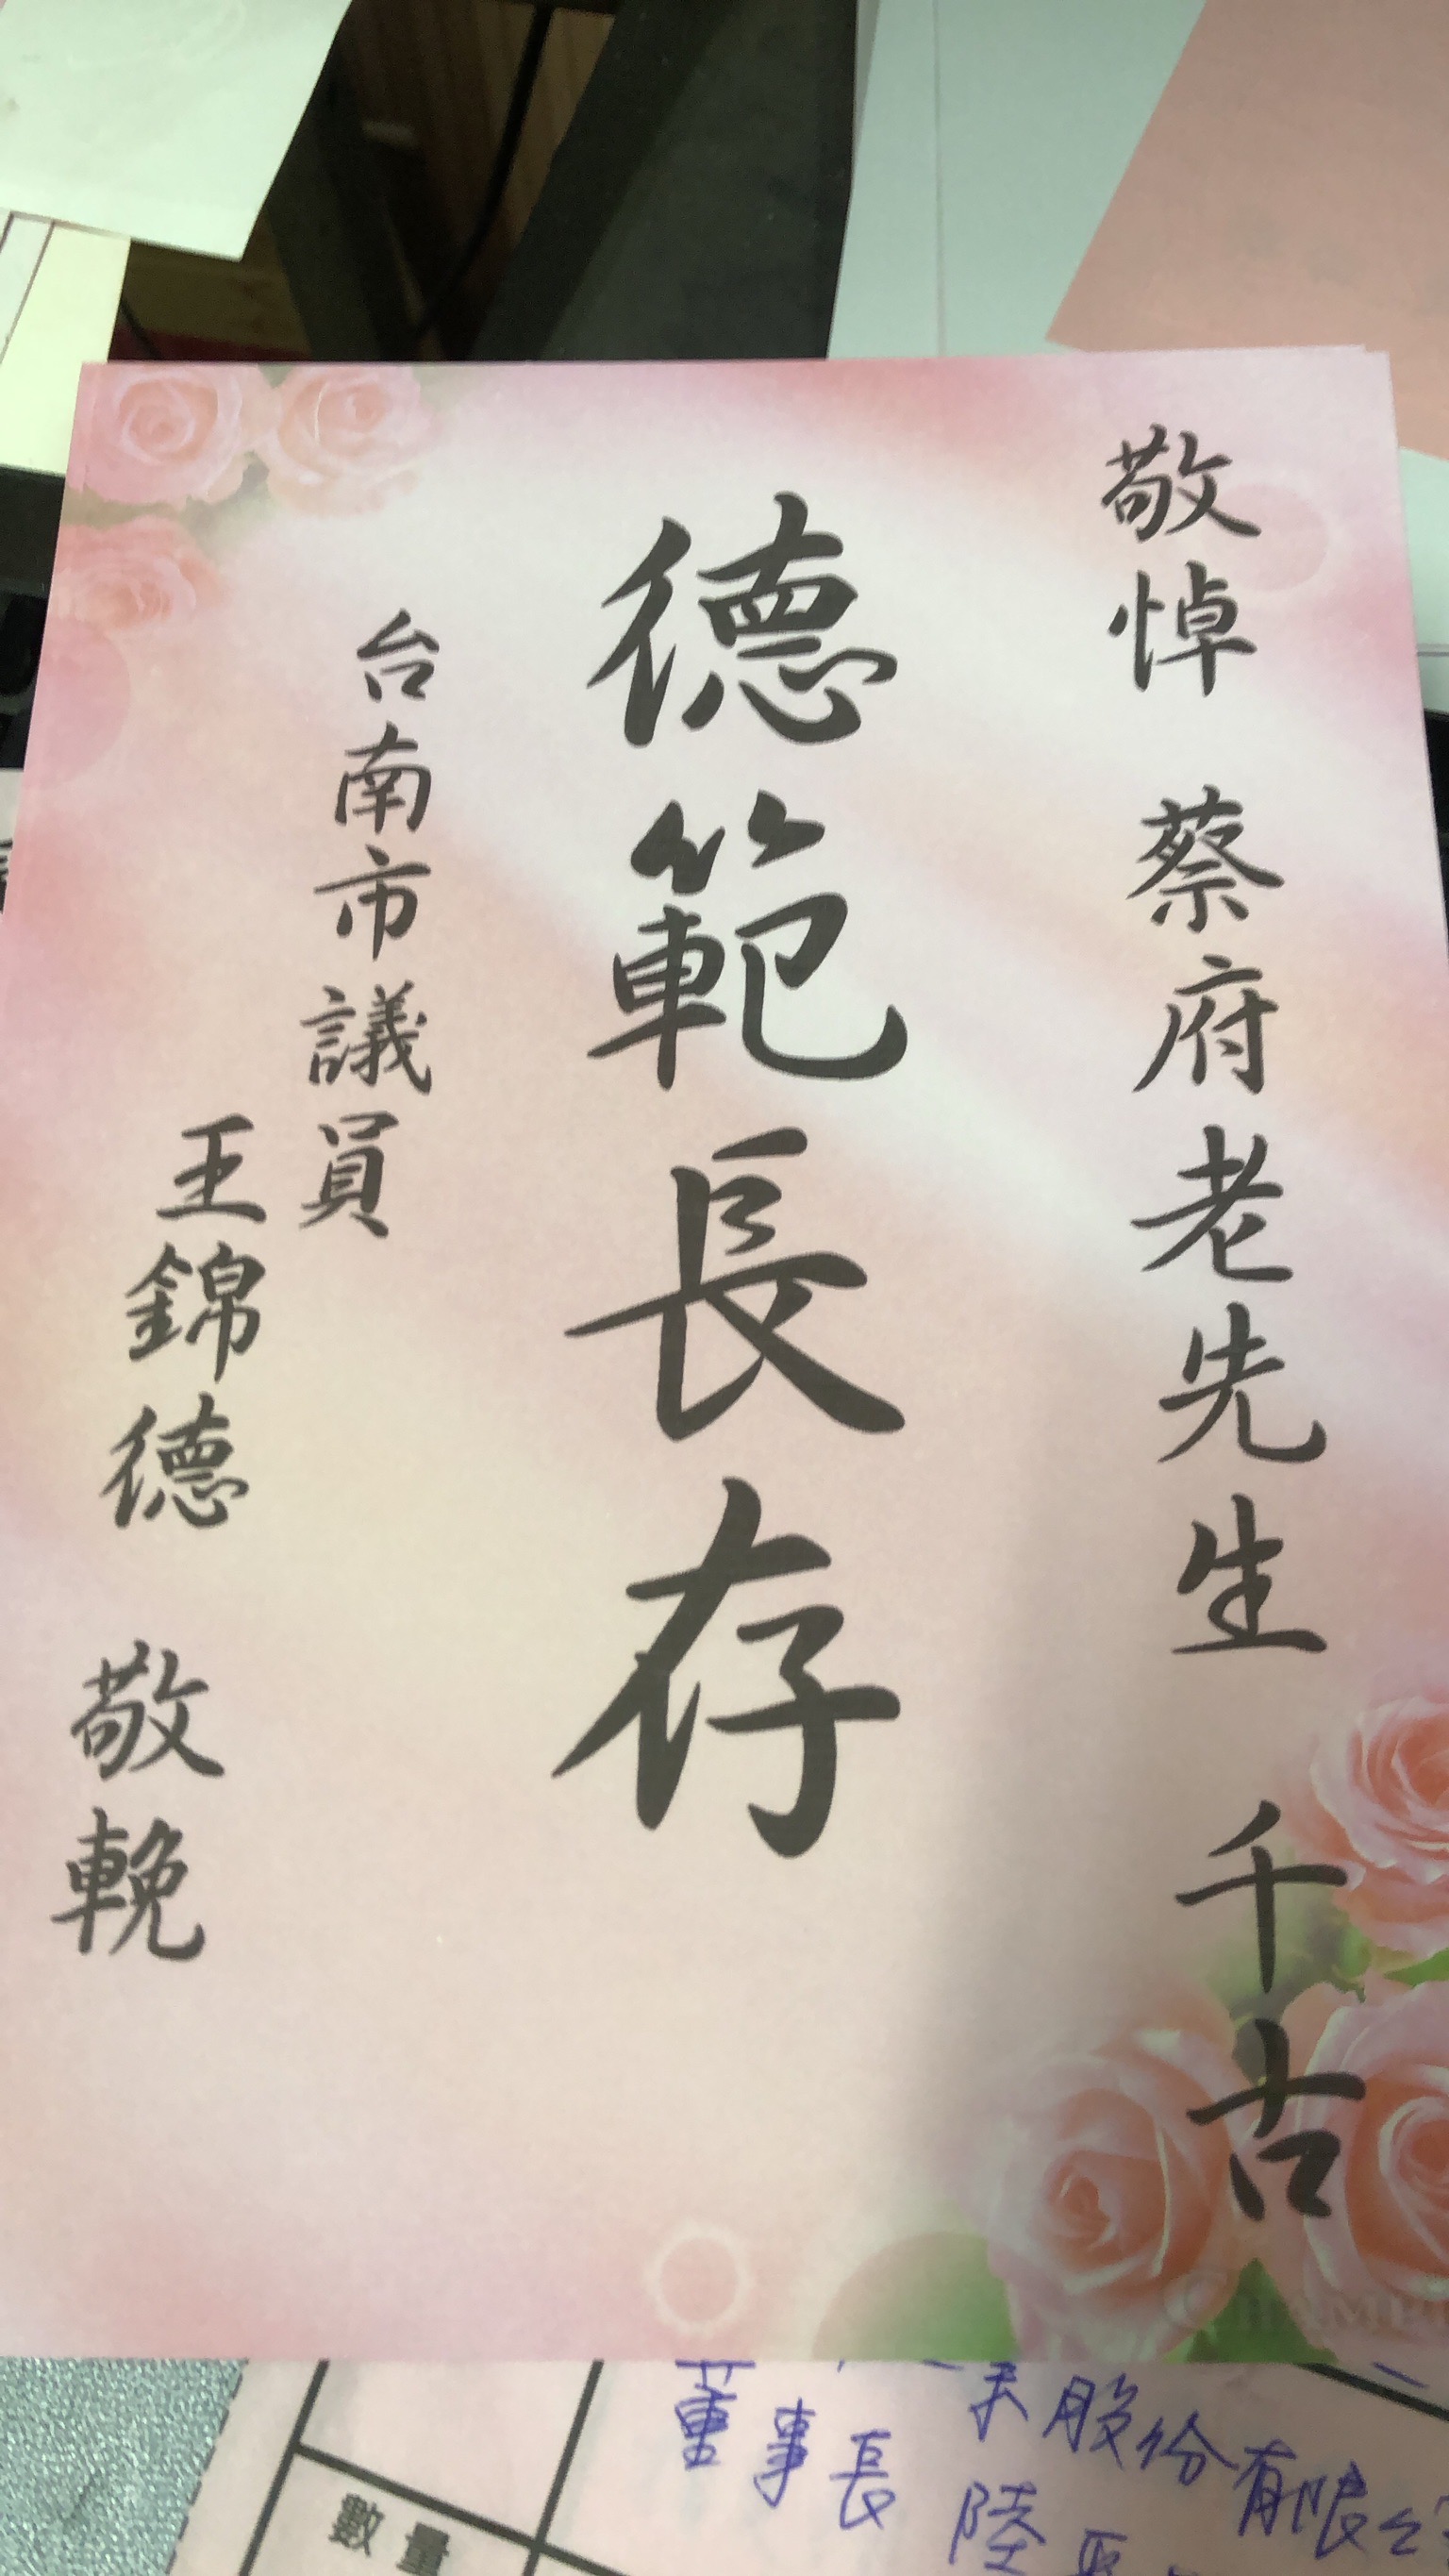 敬悼 蔡府老先生 千古
德範長存
台南市議員
王錦德 敬輓
股份有限公
董事長 陸
數量